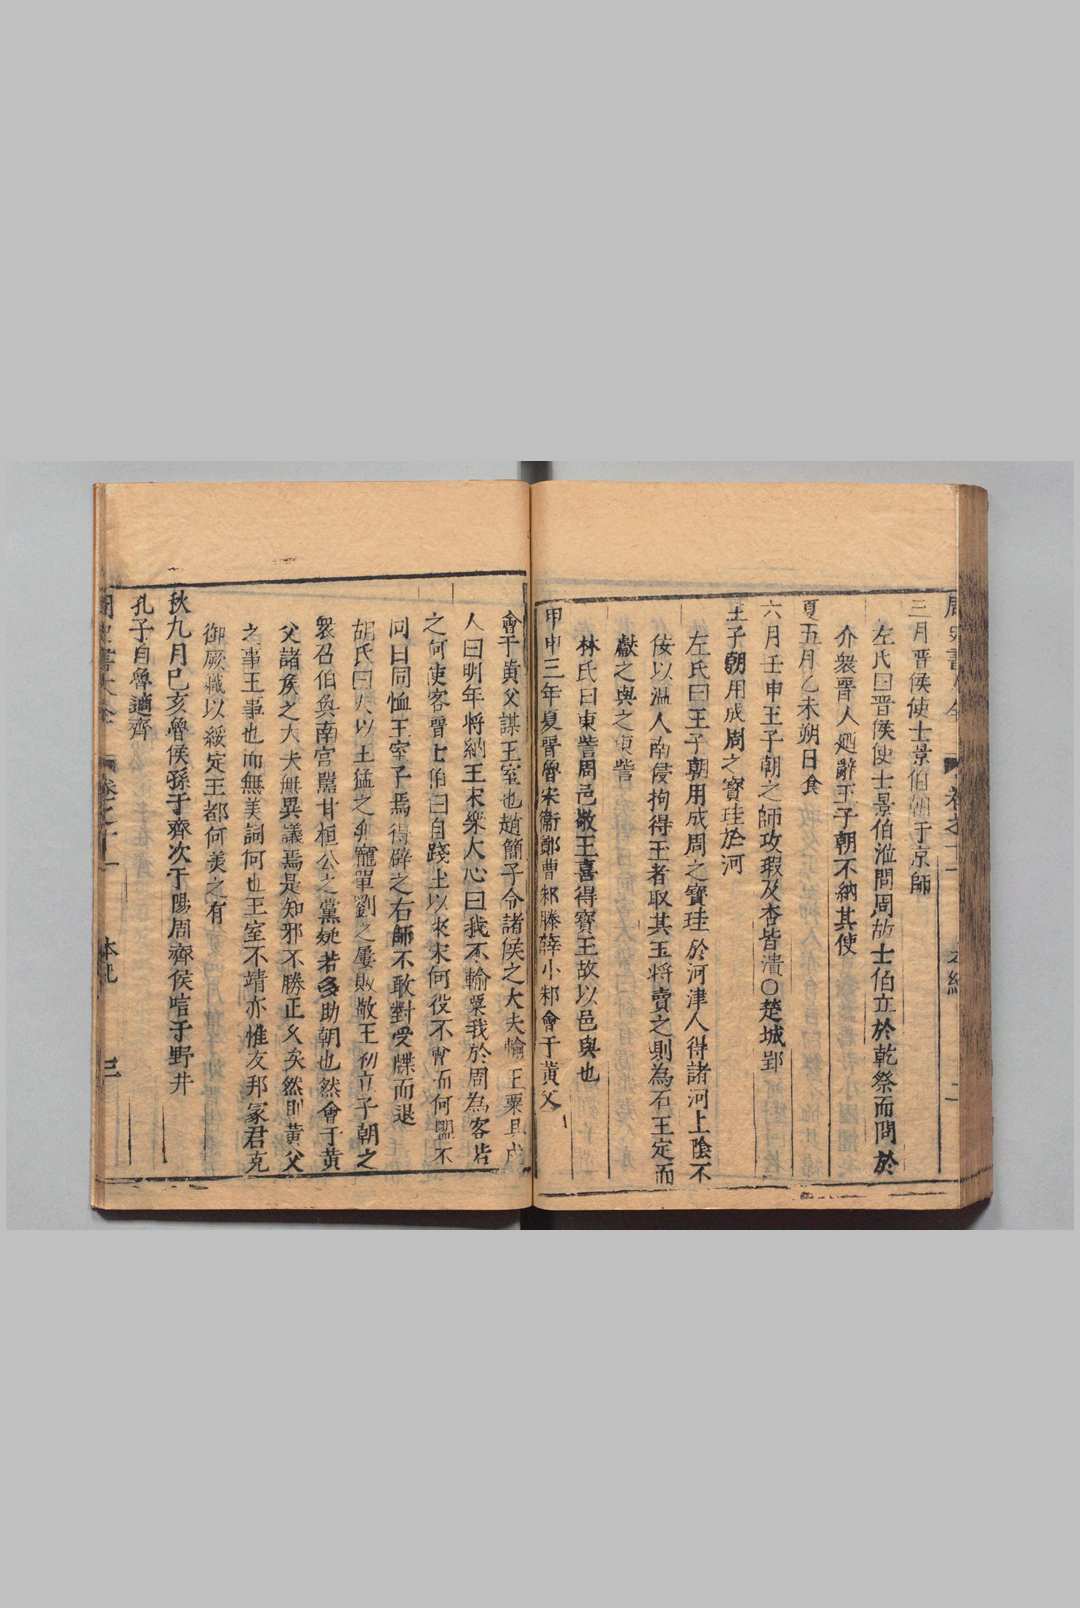 三月晋侯使士景伯朝于京師
左氏曰晋侯使士景伯涖問周故士伯立於乾祭而問於
介衆晋人廼辭王子朝不納其使
夏五月乙未朔日食
六月壬申王子朝之師攻瑕及杏皆潰○楚城郢
王子朝用成周之寳珪於河
左氏曰王子朝用成周之寳珪於河津人得諸河上陰不
佞以温人南侵拘得玉者取其玉将賣之則為石王定而
獻之與之東訾
林氏曰東訾周邑敬王喜得寳玉故以邑與也
甲申三年夏晋魯宋衛鄭曹邾滕薛小邾會于黄父
會于黄父謀王室也趙簡子令諸侯之大夫輸王粟具戍
人曰明年将納王宋樂大心曰我不輸粟我於周為客若
之何使客晋士伯曰自踐土以來宋何役不會而何盟不
同曰同恤王室子焉得辟之右師不敢對受牒而退
胡氏曰以王猛之無寵單劉之屢敗敬王初立子朝之
衆召伯奐南宫嚚甘桓公之黨疑若多助朝也然會于黄
父諸侯之大夫無異議焉是知邪不勝正久矣然則黄父
之事王事也而無美詞何也王室不靖亦惟友邦冡君克
御厥職以綏定王都何美之有
秋九月已亥魯侯孫于齊次于陽周齊侯唁于野井
孔子自魯適齊